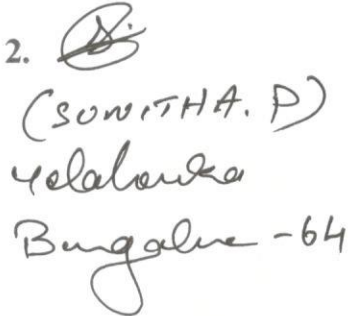 2.
(SUNITHA. P)
Yelahanka
Bangalore - 64